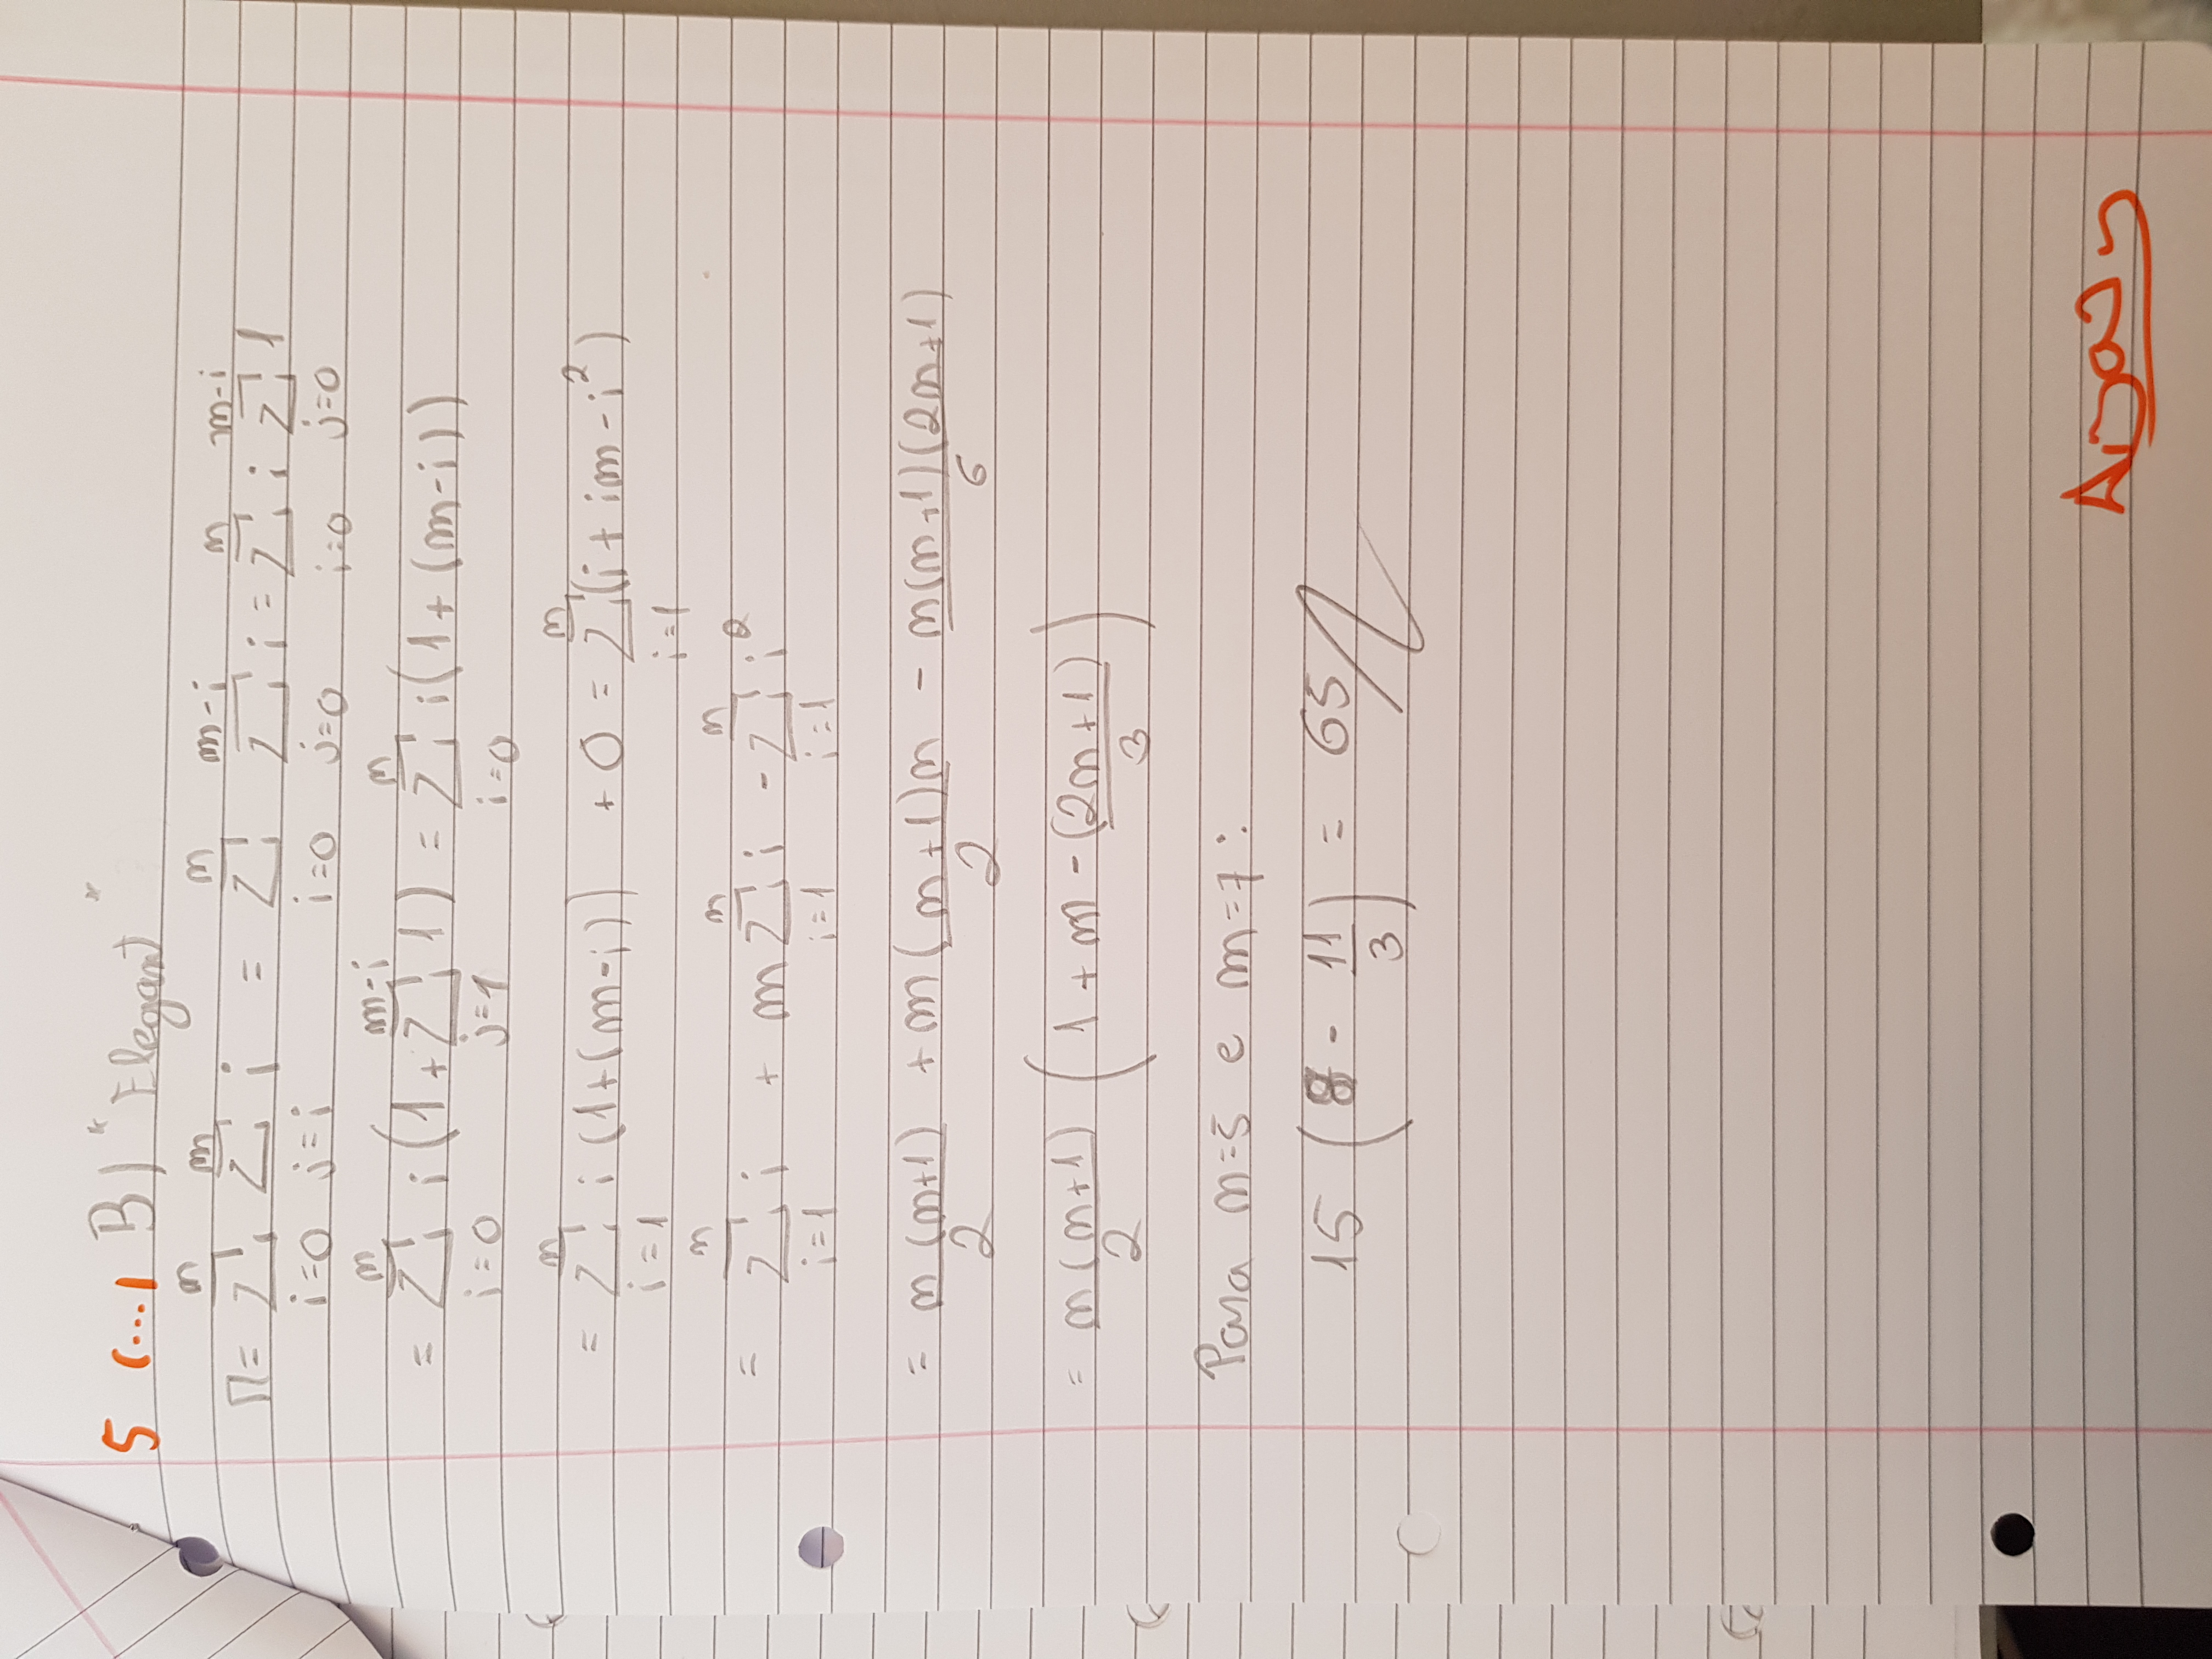 5 (...) B) "Elegant"
Π = ∑_{i=0}^{n} ∑_{j=i}^{m} i = ∑_{i=0}^{n} ∑_{j=0}^{m-i} i = ∑_{i=0}^{n} i ∑_{j=0}^{m-i} 1
= ∑_{i=0}^{n} i (1 + ∑_{j=1}^{m-i} 1) = ∑_{i=0}^{n} i (1 + (m-i))
= ∑_{i=1}^{n} i (1+(m-i)) + 0 = ∑_{i=1}^{n} (i + im - i²)
= ∑_{i=1}^{n} i + m ∑_{i=1}^{n} i - ∑_{i=1}^{n} i²
= n(n+1)/2 + m (n+1)n/2 - n(n+1)(2n+1)/6
= n(n+1)/2 (1 + m - (2n+1)/3)
Para n=5 e m=7:
15 (8 - 11/3) = 65